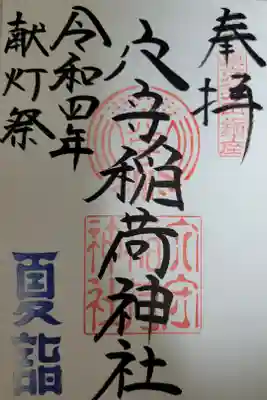 奉拝
穴守稲荷神社
令和四年
献灯祭
夏詣